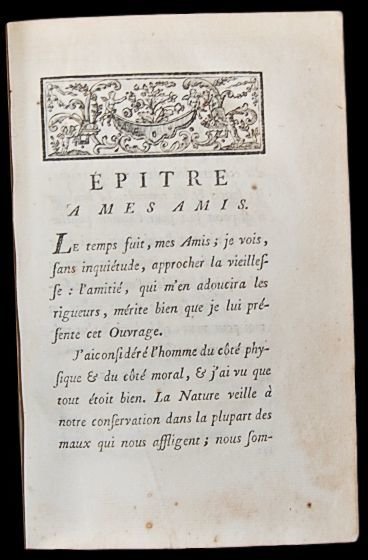 ÉPITRE
A MES AMIS.
LE temps fuit, mes Amis ; je vois,
ſans inquiétude, approcher la vieilleſ-
ſe : l'amitié, qui m'en adoucira les
rigueurs, mérite bien que je lui pré-
ſente cet Ouvrage.
J'ai conſidéré l'homme du côté phy-
ſique & du côté moral, & j'ai vu que
tout étoit bien. La Nature veille à
notre conſervation dans la plupart des
maux qui nous affligent ; nous ſom-